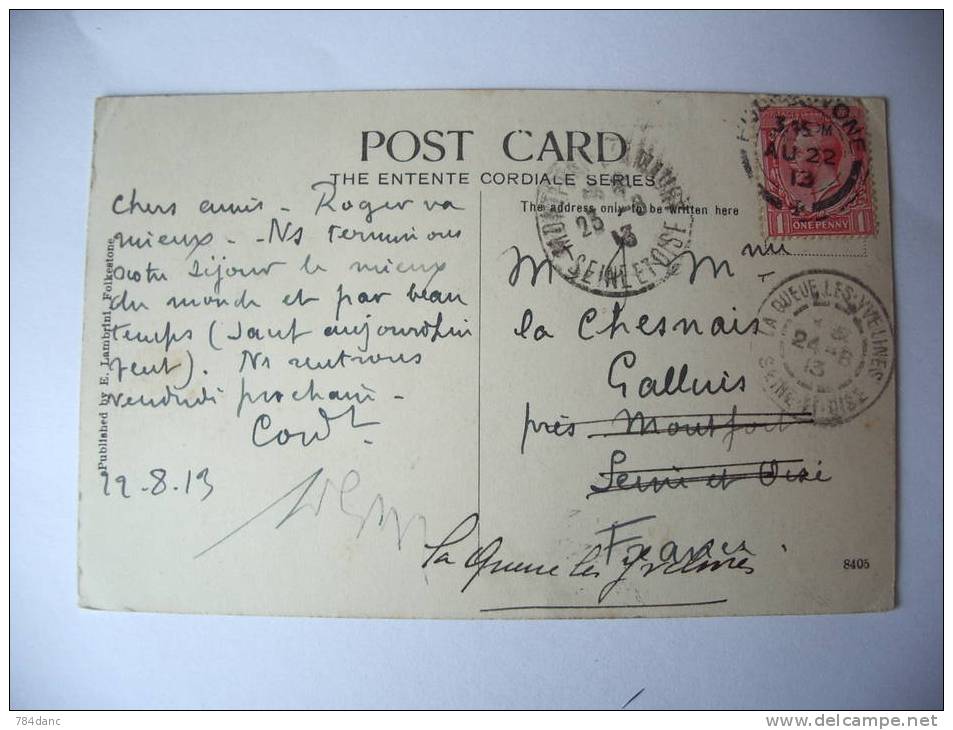 POST CARD
THE ENTENTE CORDIALE SERIES
The address only to be written here
Published by E. Lambrini, Folkestone
Chers amis - Roger va
mieux - Ns terminons
notre séjour le mieux
du monde et par beau
temps (sauf aujourd'hui
vent). Ns rentrons
vendredi prochain -
Cordt
22-8.13
M M me
la Chesnais
Galluis
près Montfort
Seine et Oise
France
la Queue les Yvelines
FOLKESTONE
3 15 PM
AU 22
13
ONE PENNY
MONTFORT-L'AMAURY
23 -8
13
SEINE ET OISE
LA QUEUE-LES-YVELINES
24 -8
13
SEINE-ET-OISE
8405
784danc
www.delcampe.net